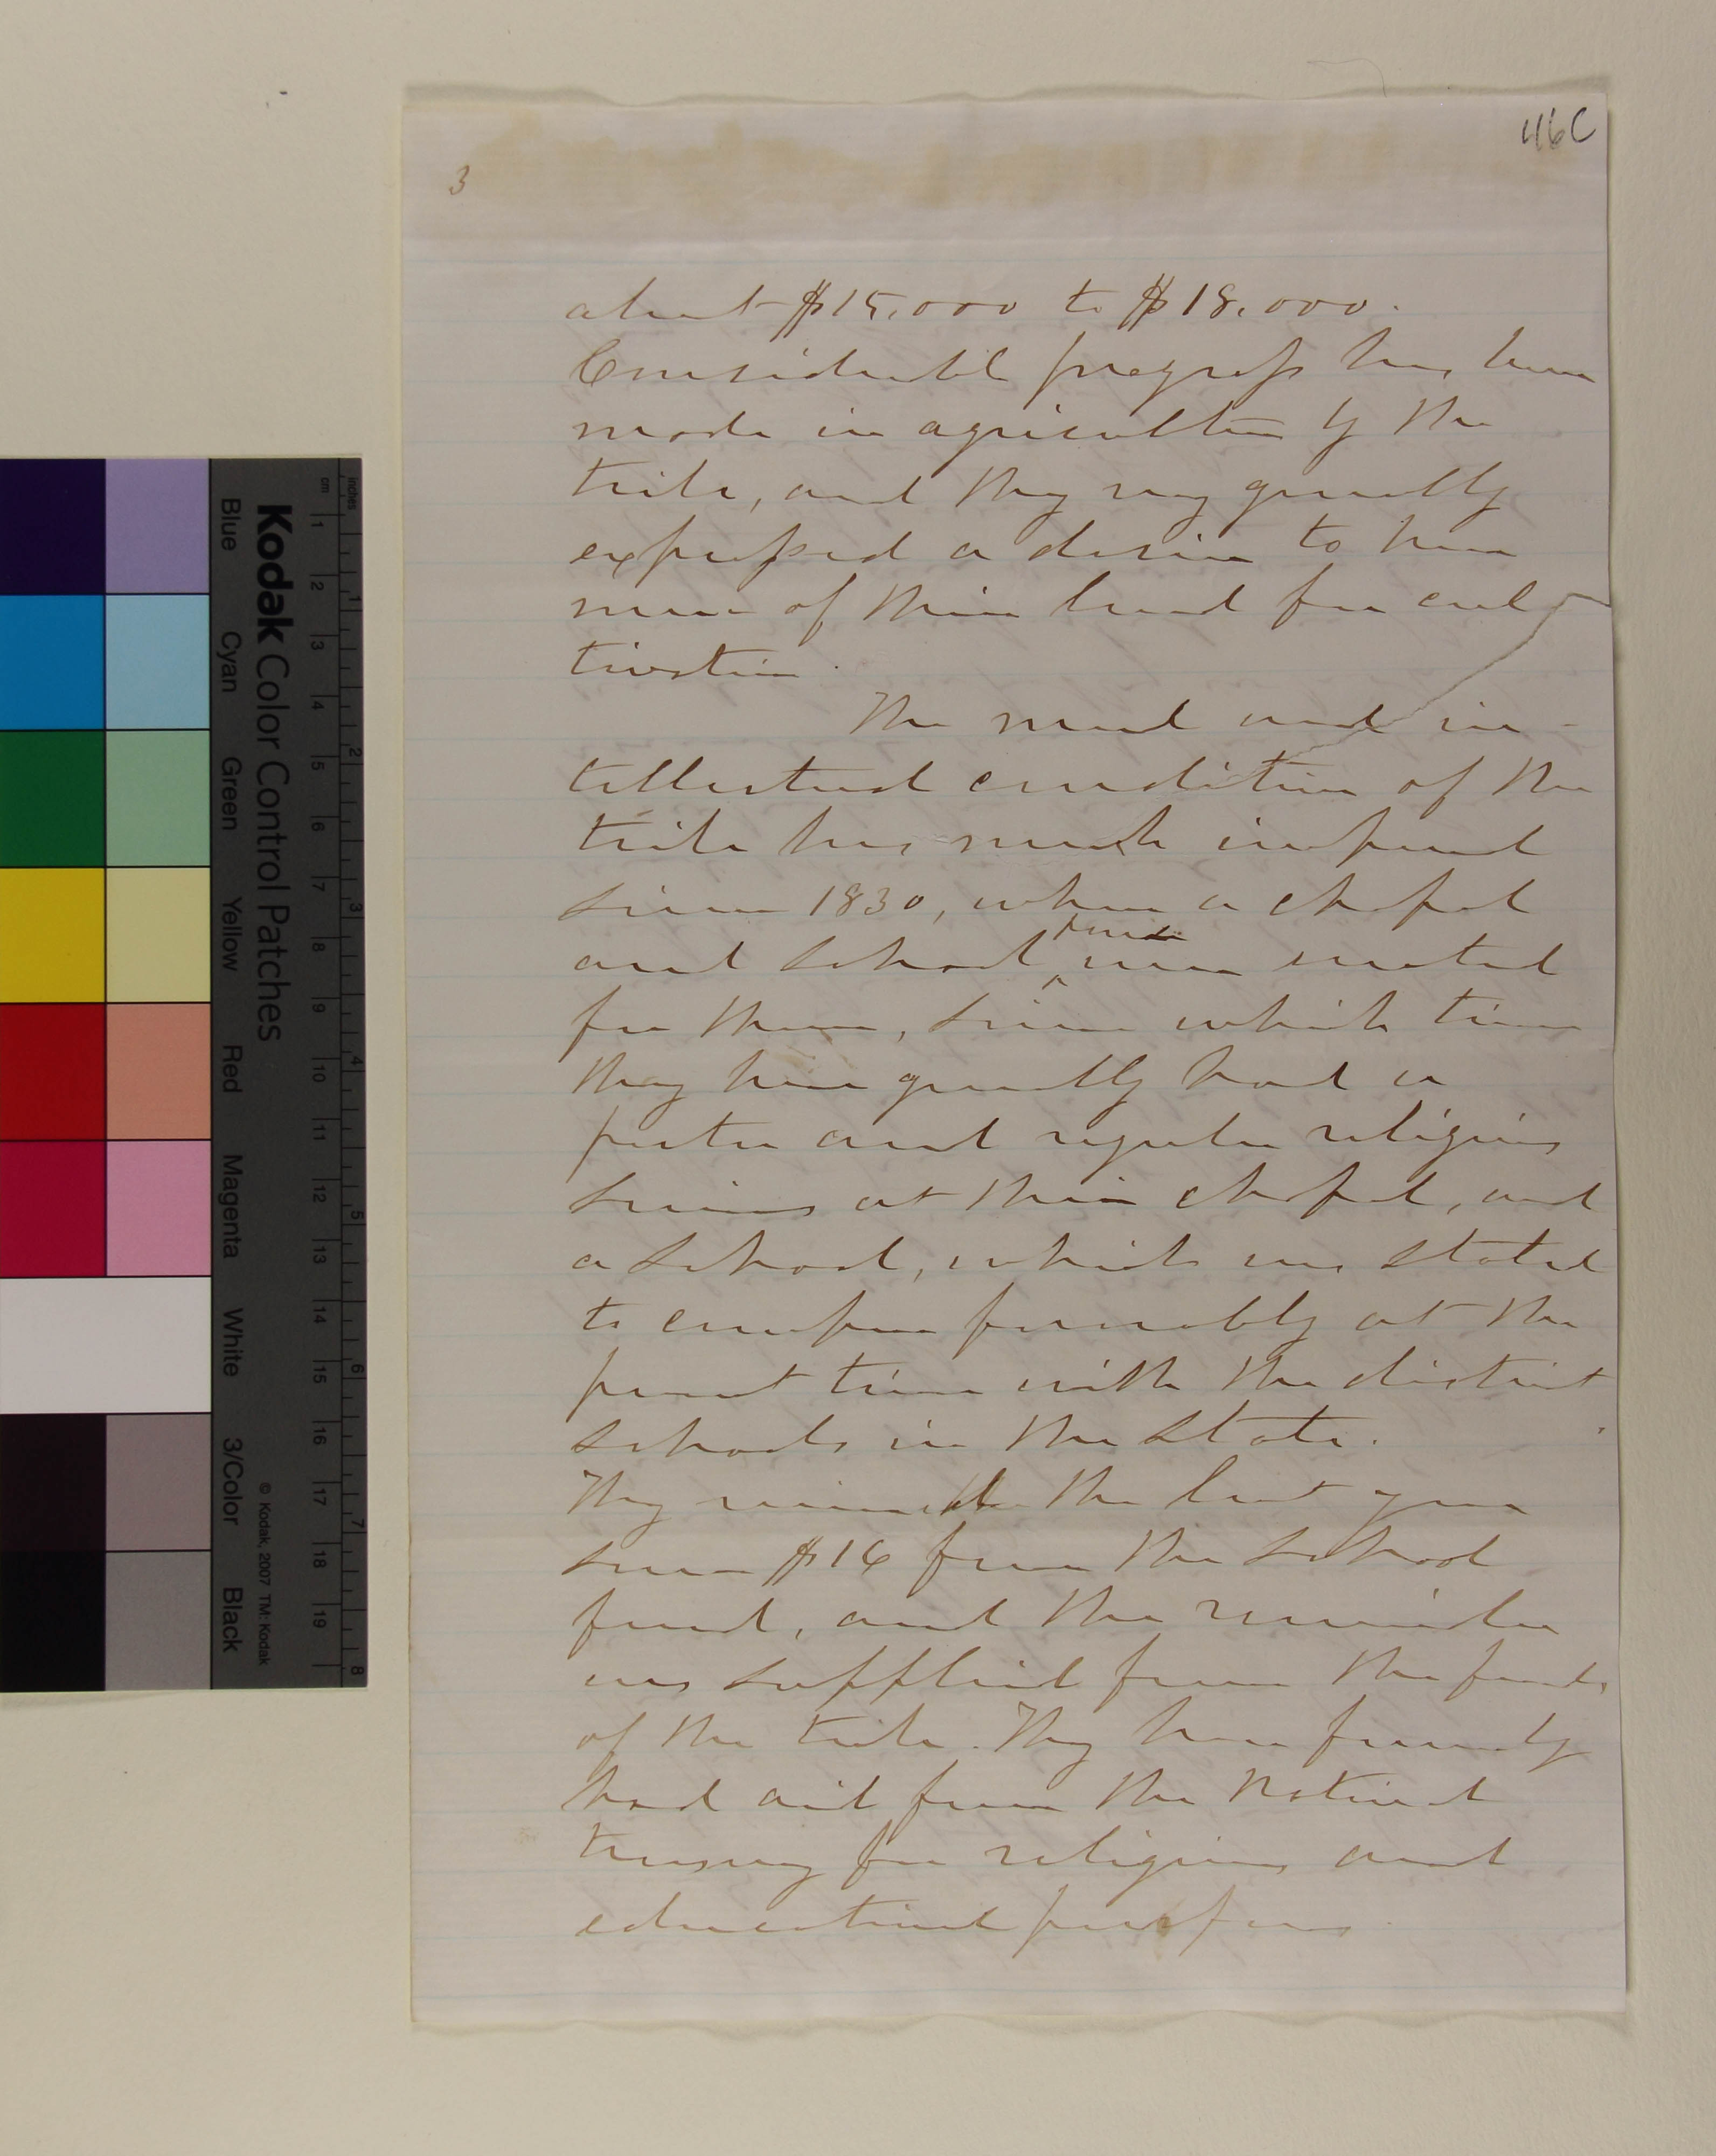 46C
3
about $15,000 to $18,000.
Considerable progress has been
made in agriculture by the
tribe, and they very generally
expressed a desire to have
more of their land for cul
tivation.
The moral and in-
tellectual condition of the
tribe has much improved
since 1830, when a chapel
and school house were erected
for them, since which time
they have generally had a
pastor and regular religious
services at their chapel, and
a school, which was stated
to compare favorably at the
present time with the district
schools in the State.
They received the last year
some $16 from the school
fund, and the remainder
was supplied from the funds
of the tribe. They have formerly
had aid from the National
treasury for religious and
educational purposes.
inches
cm
1 2 3 4 5 6 7 8
1 2 3 4 5 6 7 8 9 10 11 12 13 14 15 16 17 18 19
Kodak Color Control Patches
© Kodak, 2007 TM: Kodak
Blue Cyan Green Yellow Red Magenta White 3/Color Black